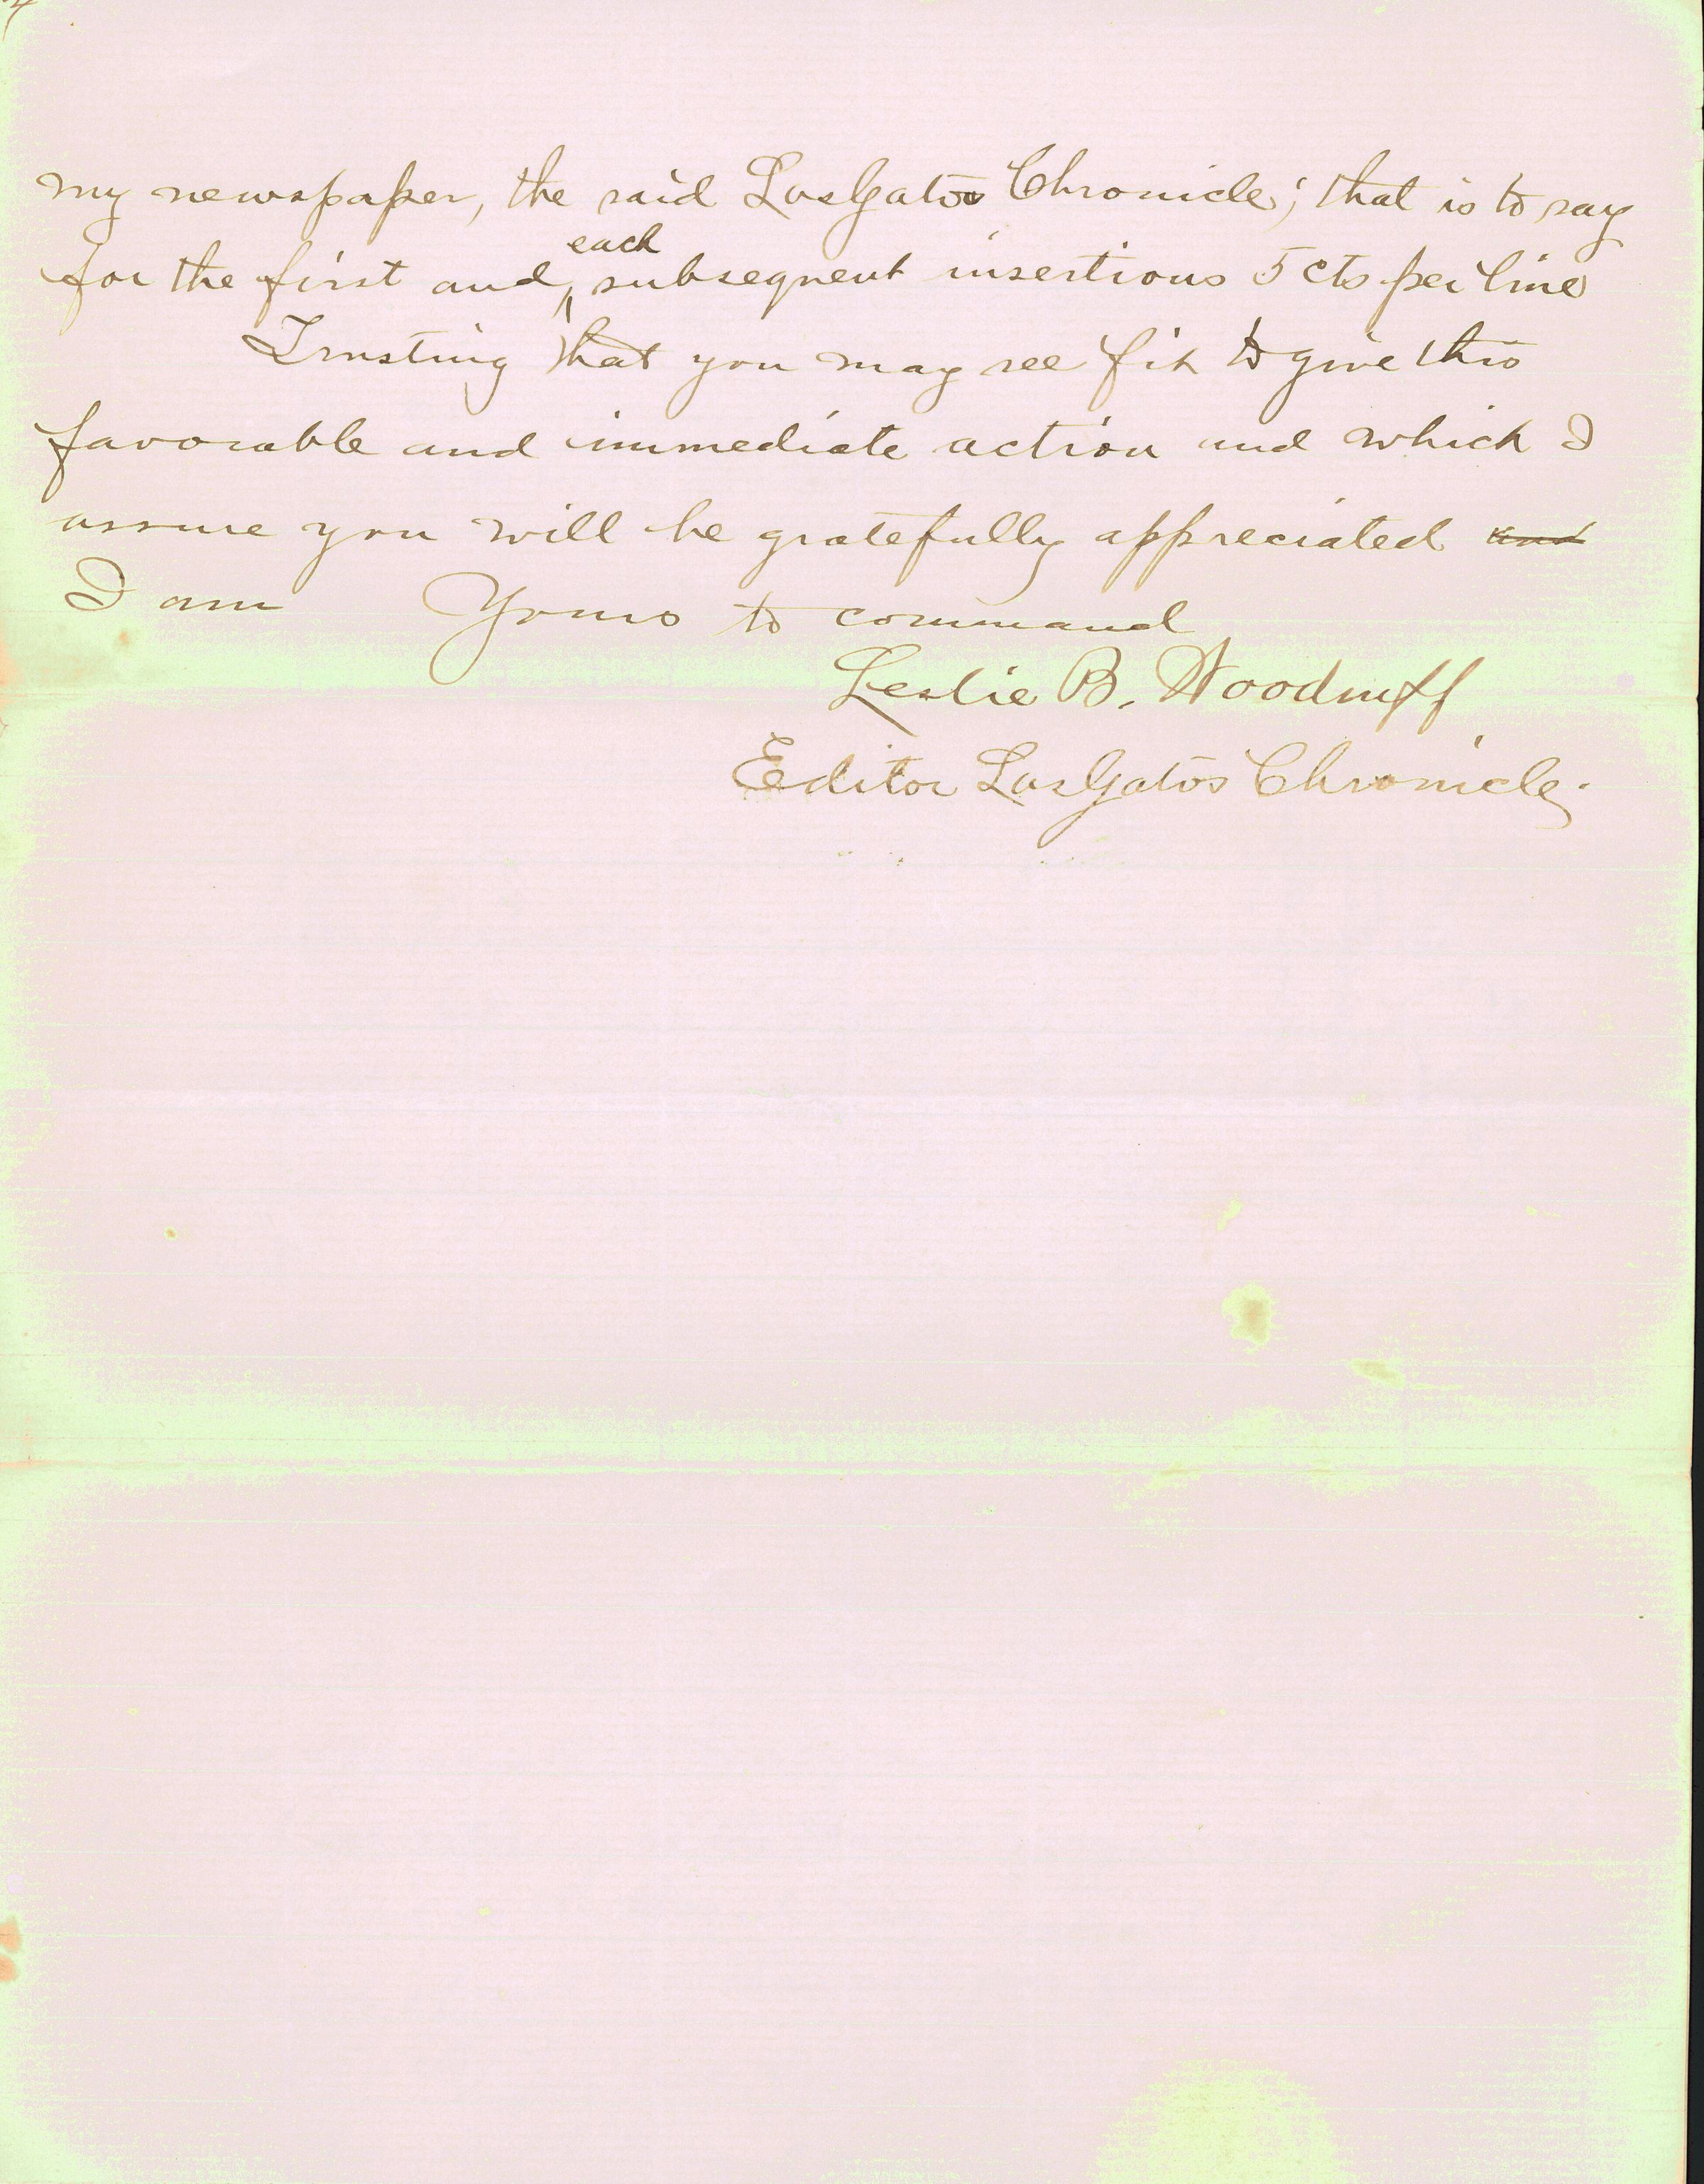 my newspaper, the said Los Gatos Chronicle; that is to say
for the first and each subsequent insertions 5 cts per line
Trusting that you may see fit to give this
favorable and immediate action and which I
assure you will be gratefully appreciated and
I am Yours to command
Leslie B. Woodruff
Editor Los Gatos Chronicle.